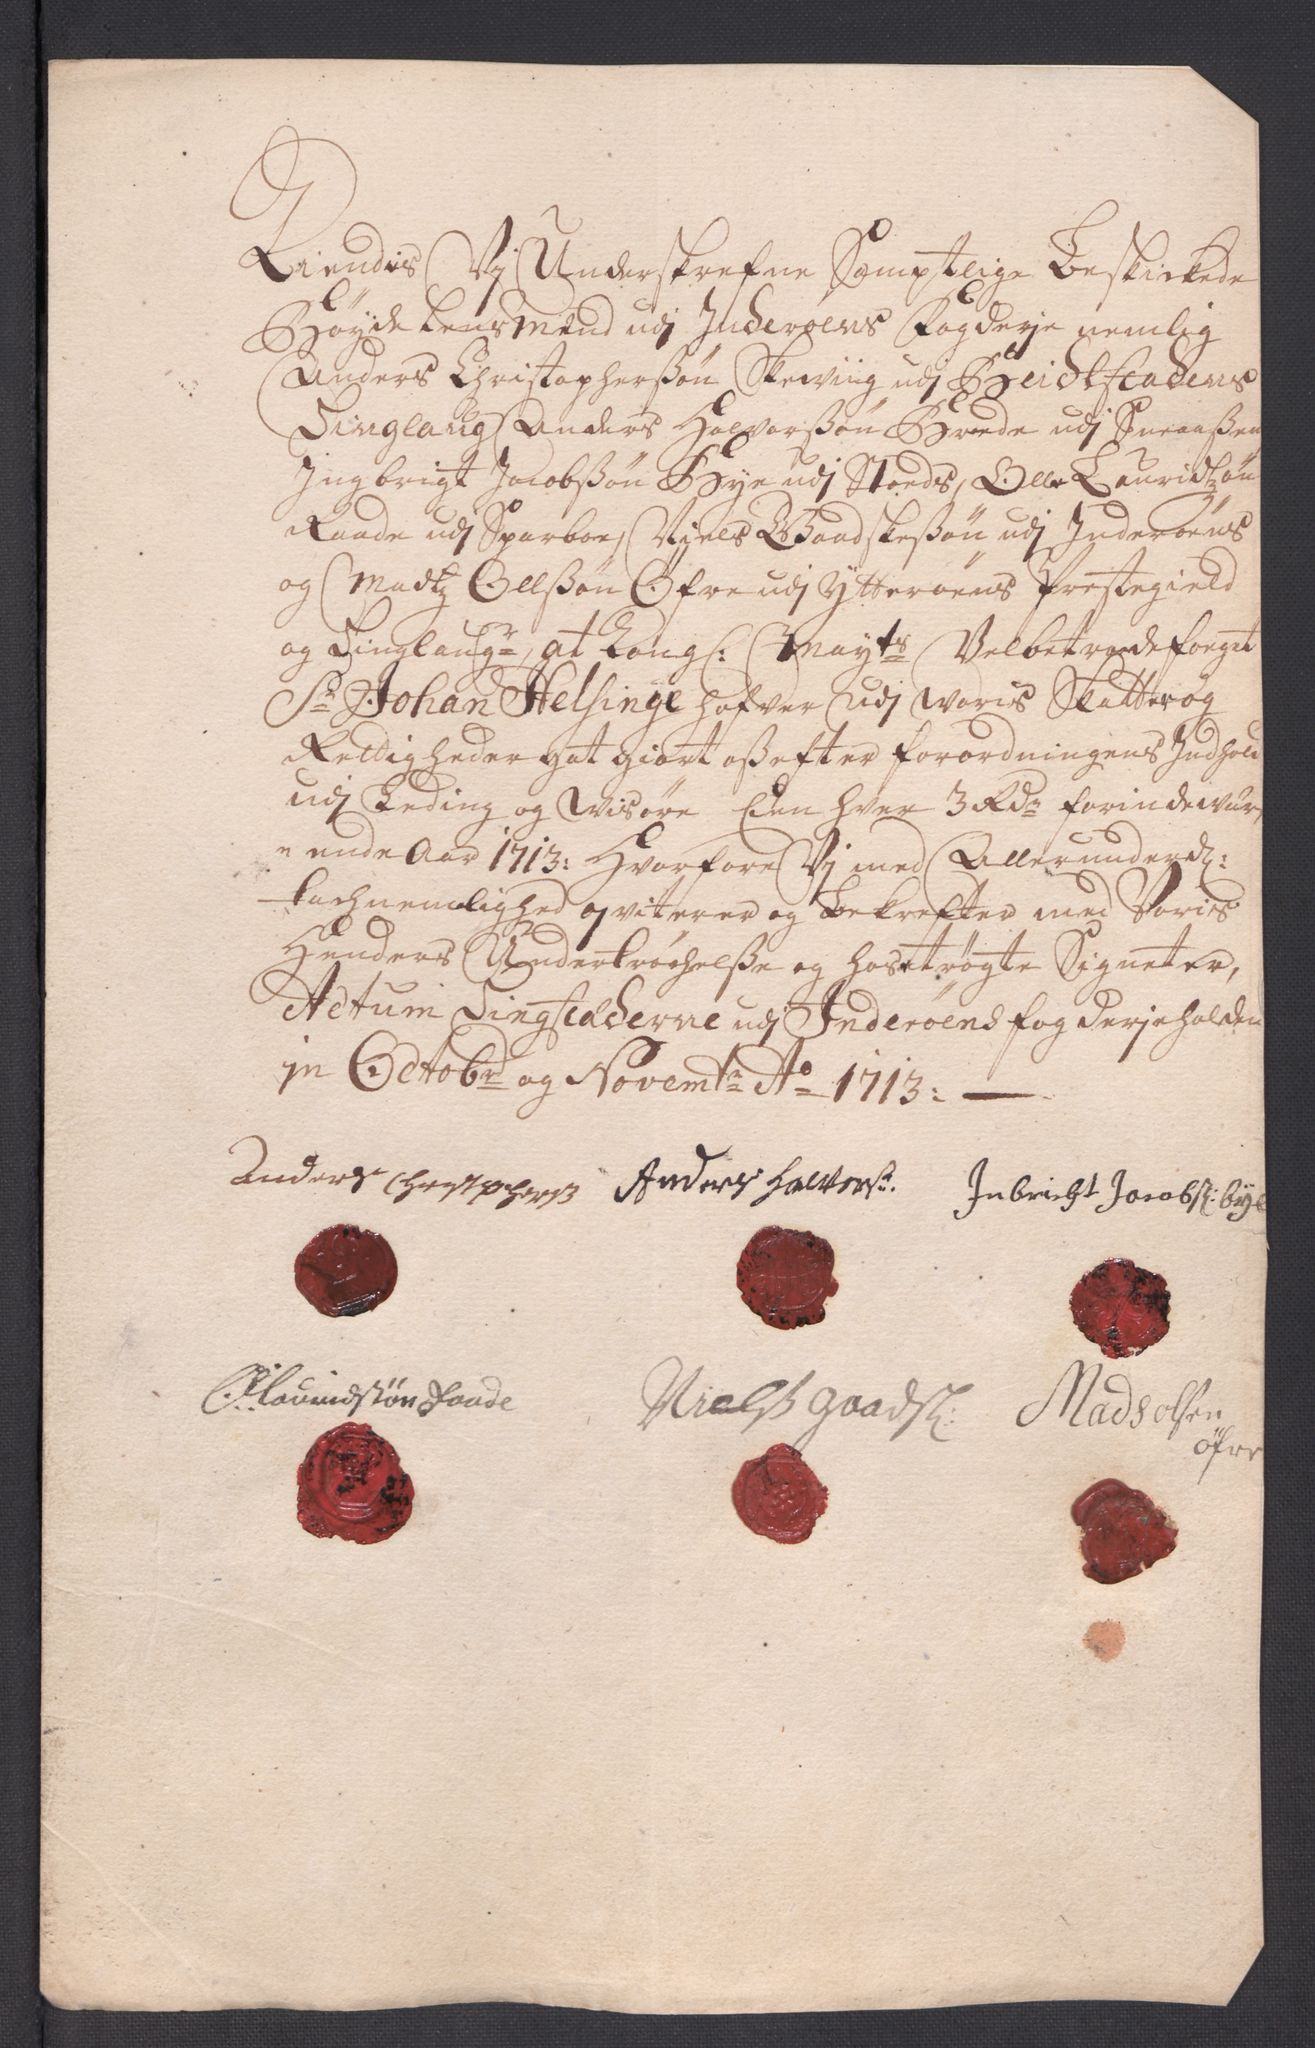 Kiendis Vj Underskrefne Samptlige Beskickede
Böyde Lens Mænd udj Inderöens Fogderje nemlig
Anders Christophersøn Skeviig udj Beidtstadens
Tinglaug Anders Halvorsøn Brede udj Sneaasen
Ingbrigt Jacobsøn Bye udj Stoeds, Olle Lauridtzøn
Raade udj Sparboe, Njels Gaadskesøn udj Inderøens
og Madtz Ollsøn Öfre udj Ytterøens Prestegield
og Tinglaugr, at Kongl: Mayts Velbetroede foeget
Sr Johan Helsinge hafver udj woris Skatter og
Rettigheder got giort oss efter forordningens Indhold
udj Leding og Wisøre Een hver 3 Rdr for indewær,,
,,ende Aar 1713: Hvorfore Vj med Allerunderd:
tachnemlighed qviterer og Bekrefter med Voris
Henders Undertröchelse og hoströgte Signeter,
Actum Tingstæderne udj Inderöens fogderje holden
in Octobr og Novembr Ao 1713: —
Anders Christophersß
Anders Halvorsn:
Inbricht Jacobsl: bye
O: Lauridsøn Raade
Nielss Gaadsl:
Mads olsen
öfre